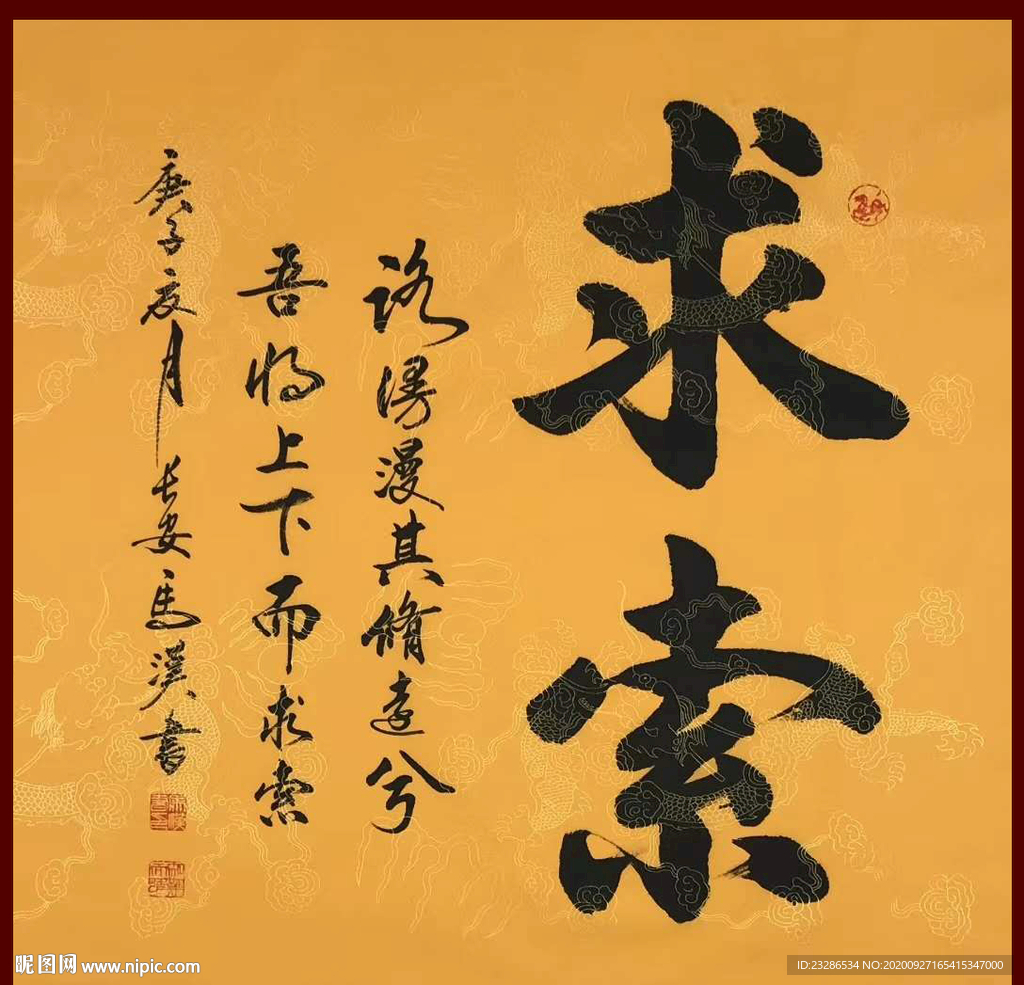 求索
路漫漫其脩遠兮
吾将上下而求索
庚子夏月长安馬溪書
昵图网 www.nipic.com
ID:23286534 NO:20200927165415347000